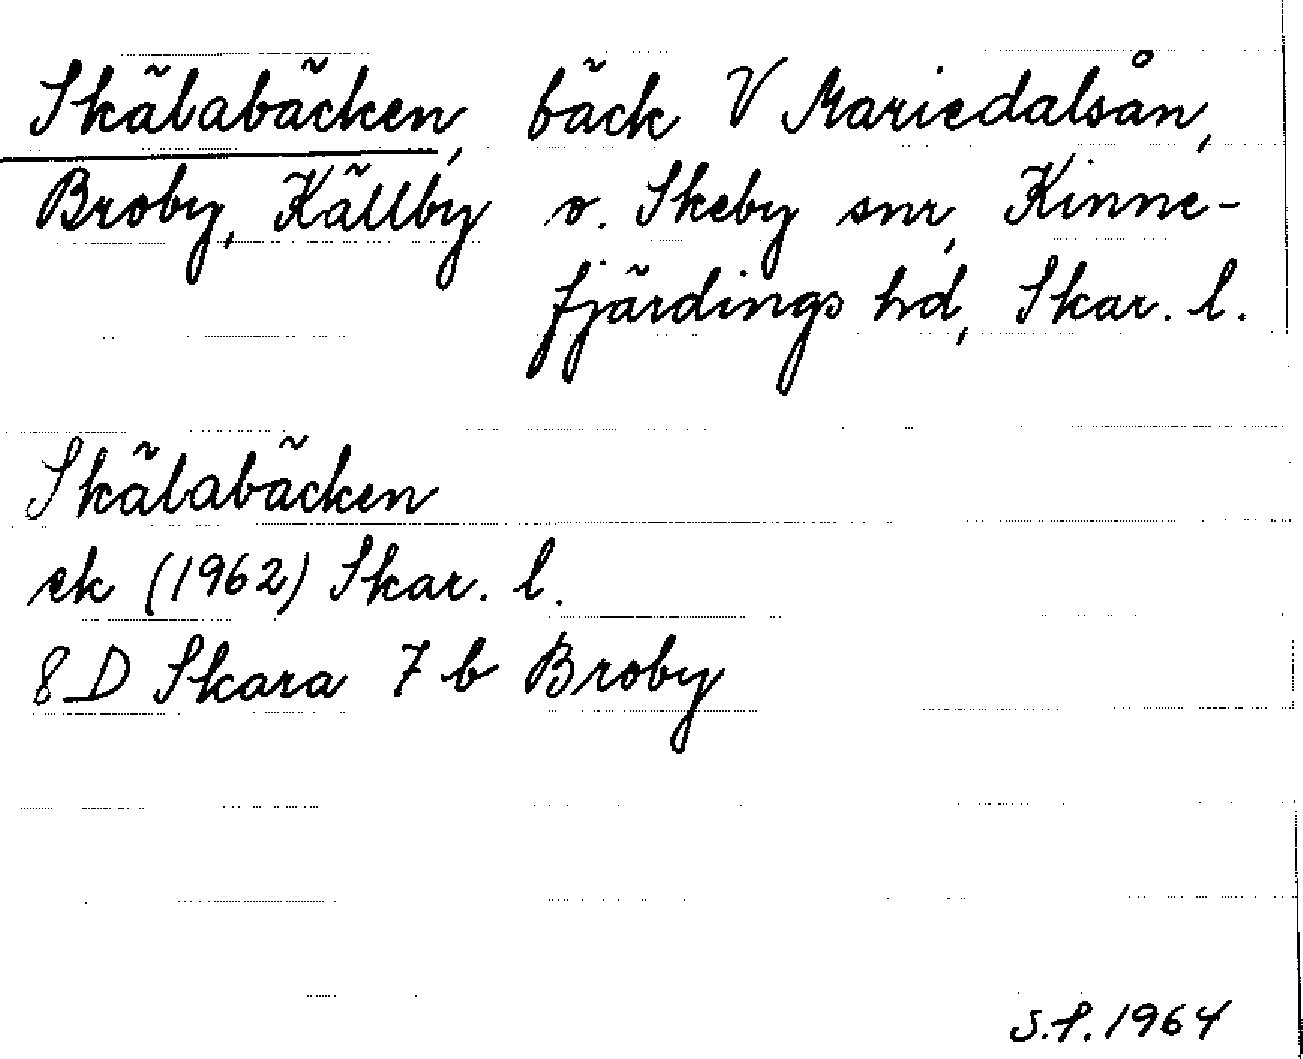 Skälabäcken, bäck V Mariedalsån,
Broby, Källby o. Skeby snr, Kinne-
fjärdings hd, Skar. l.
Skälabäcken
ek (1962) Skar. l.
8 D Skara 7 b Broby
S.P. 1964